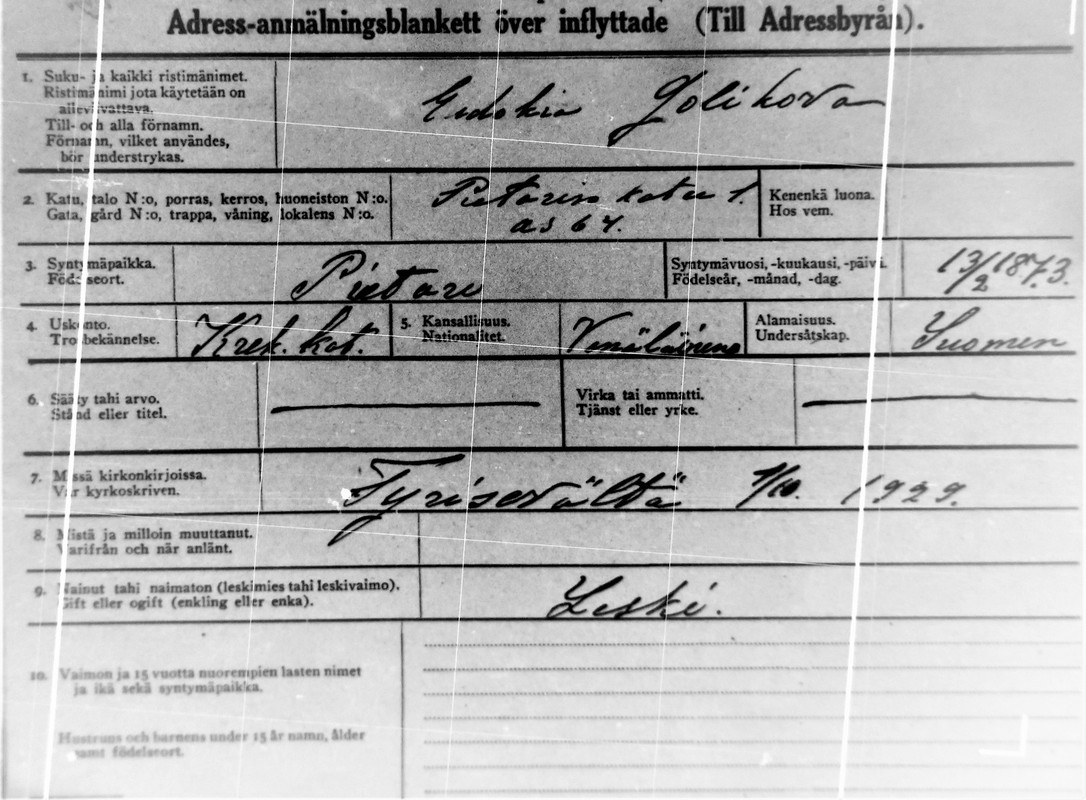 Adress-anmälningsblankett över inflyttade (Till Adressbyrån).
1. Suku- ja kaikki ristimänimet.
Ristimänimi jota käytetään on
alleviivattava.
Till- och alla förnamn.
Förnamn, vilket användes,
bör understrykas.
Eudokia Golikova
2. Katu, talo N:o, porras, kerros, huoneiston N:o.
Gata, gård N:o, trappa, våning, lokalens N:o.
Pietarin katu 1.
as 64.
Kenenkä luona.
Hos vem.
3. Syntymäpaikka.
Födelseort.
Pietari
Syntymävuosi, -kuukausi, -päivä.
Födelseår, -månad, -dag.
13/2 1873.
4. Uskonto.
Trosbekännelse.
Krek. kat.
5. Kansallisuus.
Nationalitet.
Venäläinen
Alamaisuus.
Undersåtskap.
Suomen
6. Sääty tahi arvo.
Stånd eller titel.
Virka tai ammatti.
Tjänst eller yrke.
7. Missä kirkonkirjoissa.
Var kyrkoskriven.
Tyrisevältä 1/10. 1929.
8. Mistä ja milloin muuttanut.
Varifrån och när anlänt.
9. Nainut tahi naimaton (leskimies tahi leskivaimo).
Gift eller ogift (enkling eller enka).
Leski.
10. Vaimon ja 15 vuotta nuorempien lasten nimet
ja ikä sekä syntymäpaikka.
Hustruns och barnens under 15 år namn, ålder
samt födelseort.